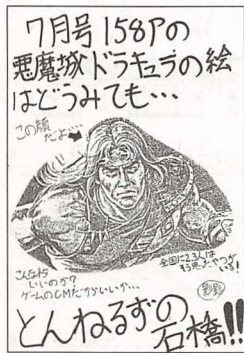 7月号158Pの
悪魔城ドラキュラの絵
はどうみても…
この顔
だよ…
こんなわ
いいのか?
ゲームのCMだからいいか…
全国に23人は
そう思ったやつが
いる!
とんねるずの
石橋!!